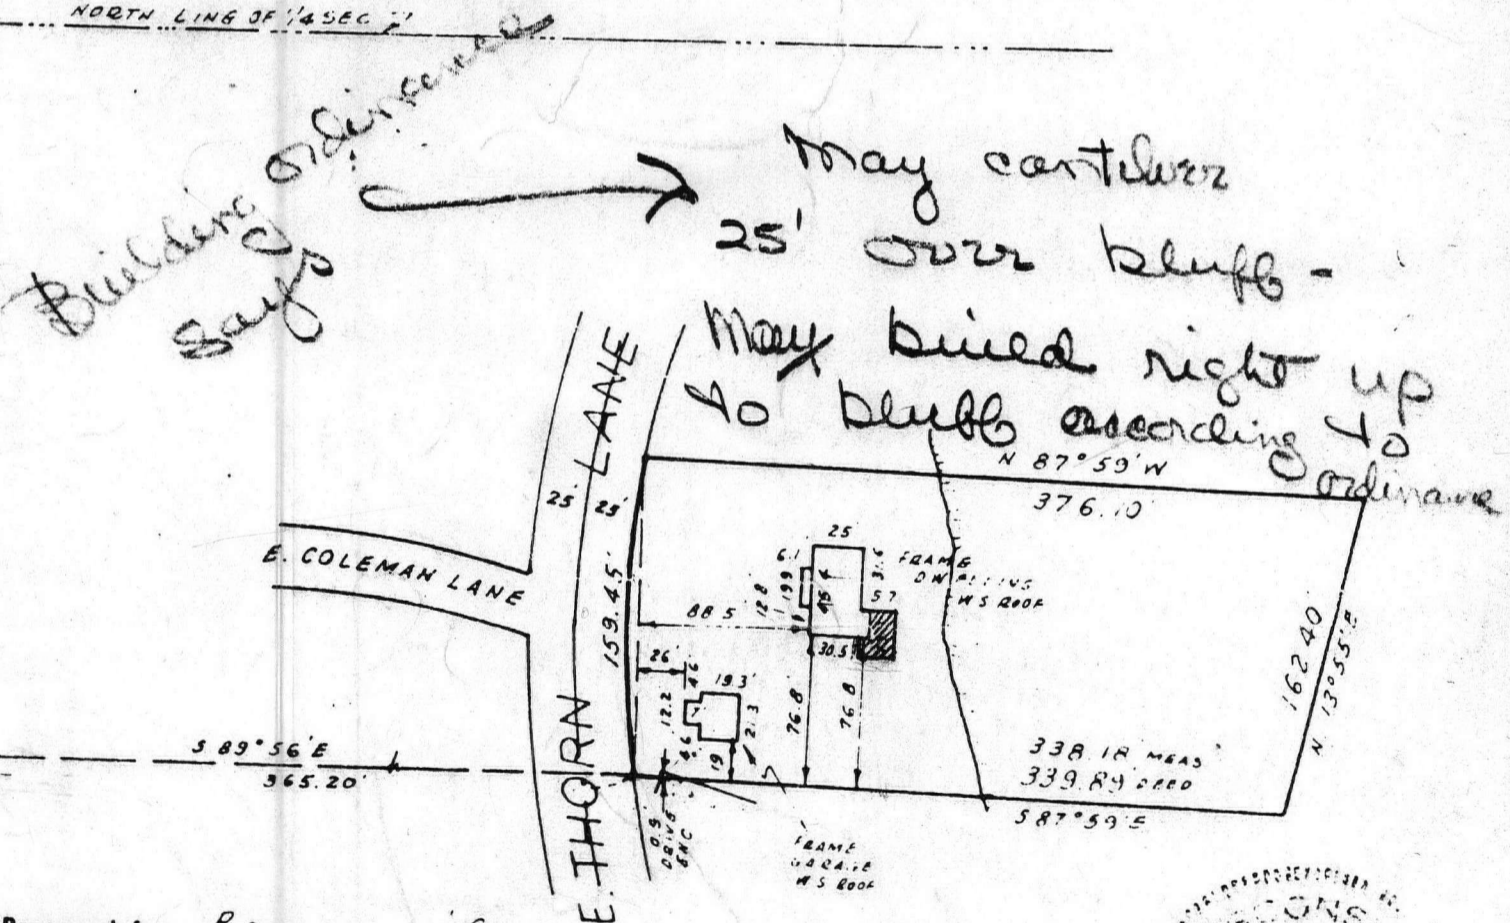 NORTH LINE OF 1/4 SEC
Building ordinance
says
May cantilever
25' over bluff -
May build right up
to bluff according to
ordinance
N 87° 59' W
376.10
E. THORN LANE
25' 25'
159.45'
E. COLEMAN LANE
25
6.1
19.9
12.8
31.6
5.7
30.5
88.5'
FRAME
DWELLING
W S ROOF
26'
4.6
19.3'
12.2
21.3
4.6
19
76.8'
76.8
162.40'
N 13° 55' E
S 89° 56' E
965.20'
338.18 MEAS
339.89 DEED
S 87° 59' E
0.9'
DRIVE
ENC
FRAME
GARAGE
W S ROOF